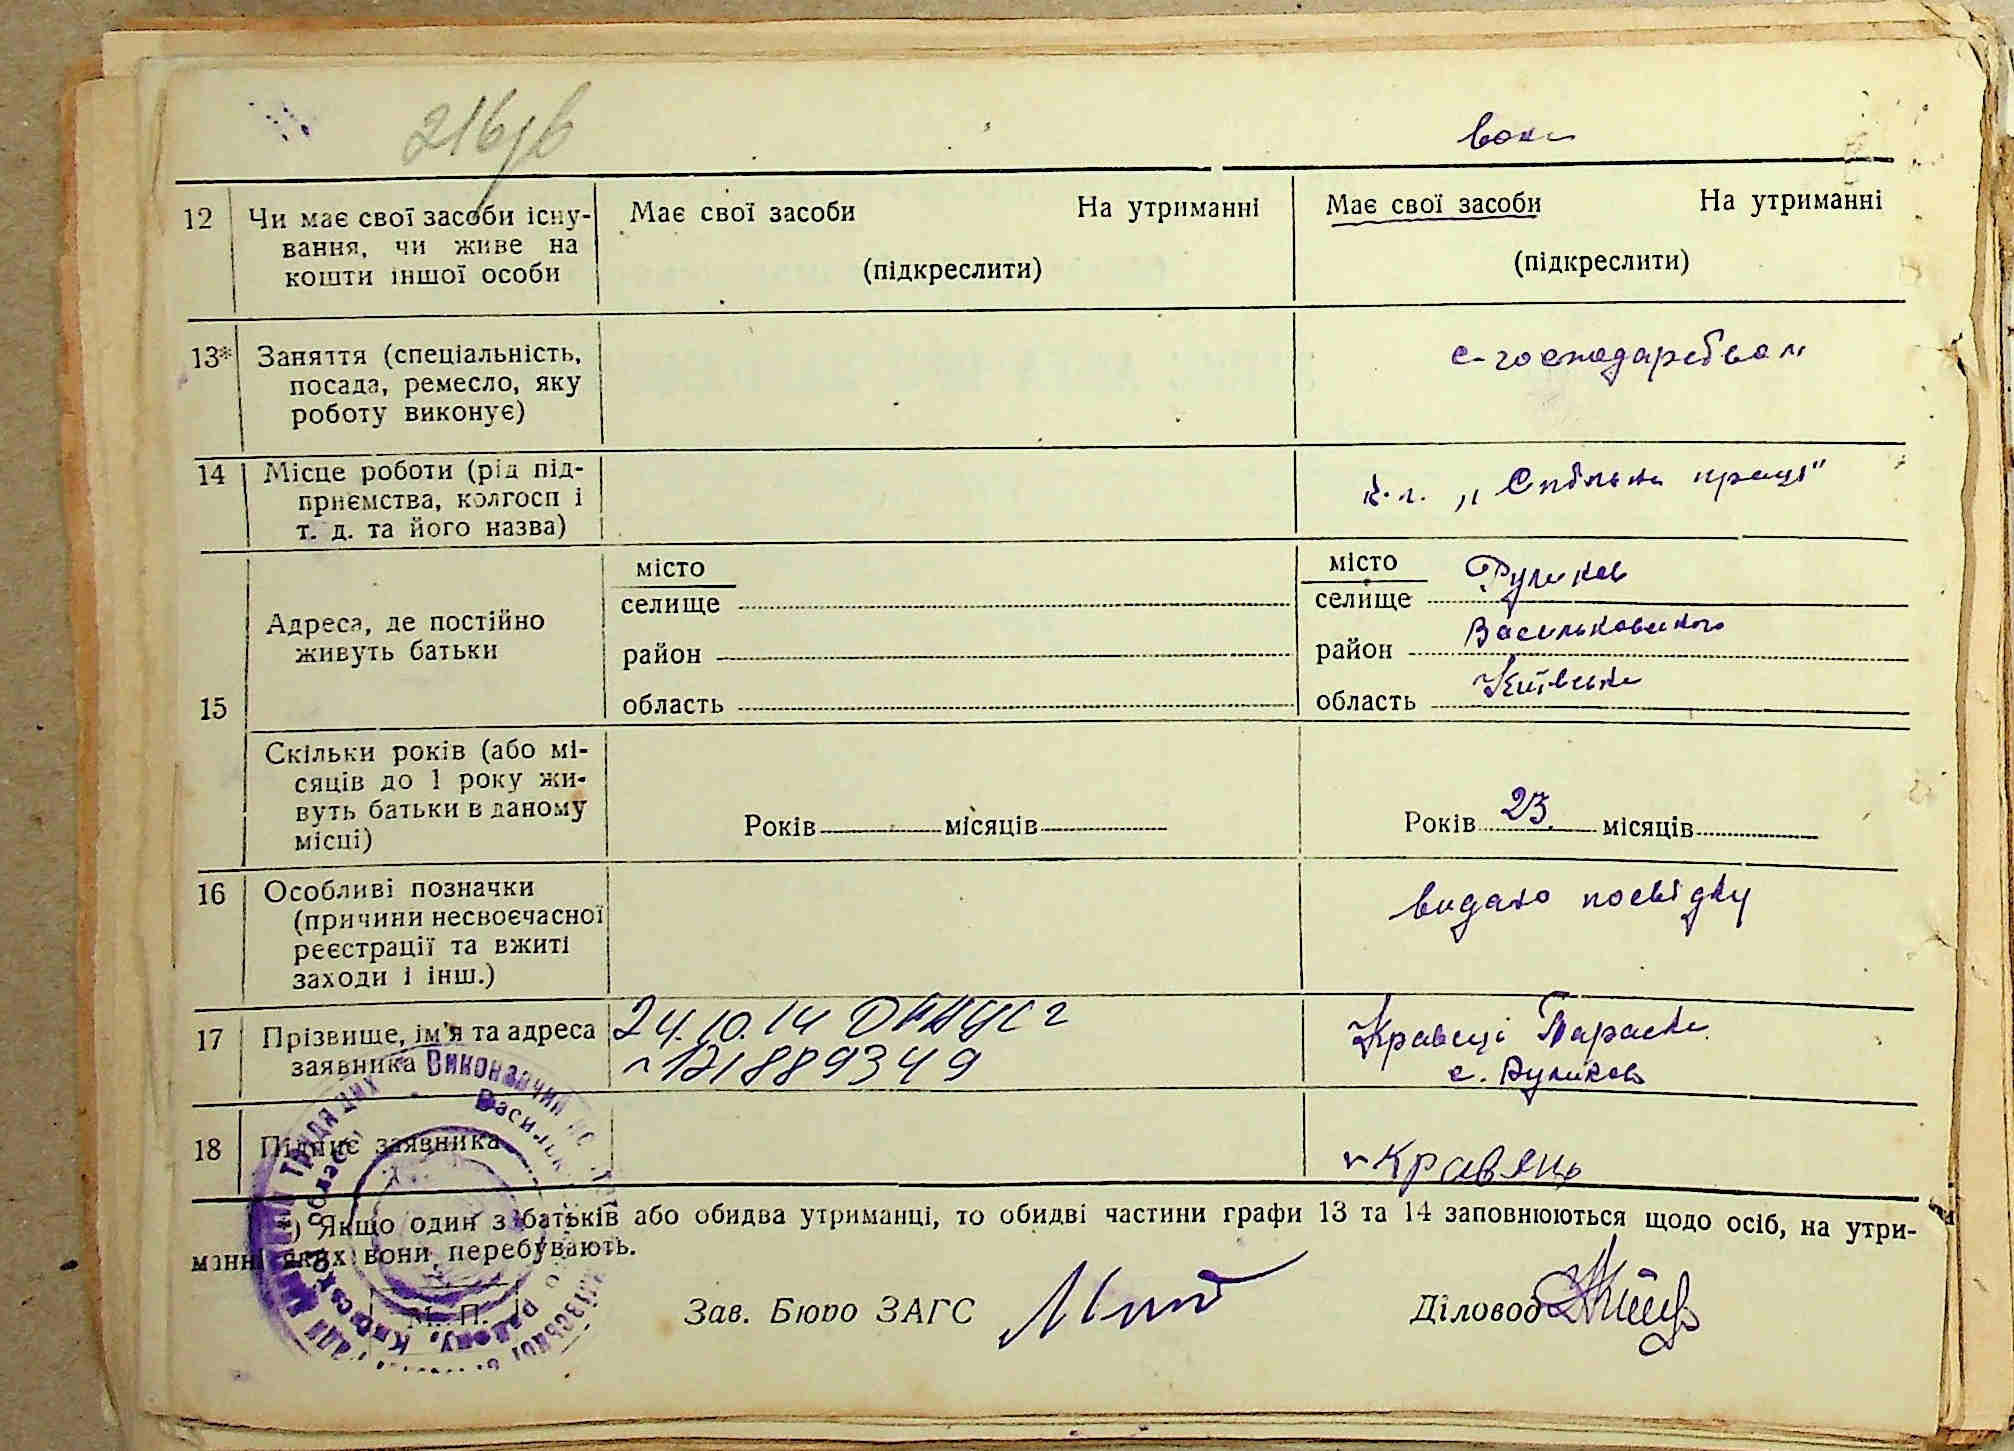 216/в
вона
12 Чи має свої засоби існу-
вання, чи живе на
кошти іншої особи
Має свої засоби На утриманні
(підкреслити)
Має свої засоби На утриманні
(підкреслити)
13* Заняття (спеціальність,
посада, ремесло, яку
роботу виконує)
с-господарством
14 Місце роботи (рід під-
приємства, колгосп і
т. д. та його назва)
к.г. „Спільна праця"
15 Адреса, де постійно
живуть батьки
місто
селище
район
область
місто
селище Руликов
район Васильковского
область Київська
Скільки років (або мі-
сяців до 1 року жи-
вуть батьки в даному
місці)
Років місяців
Років 23 місяців
16 Особливі позначки
(причини несвоєчасної
реєстрації та вжиті
заходи і інш.)
видано посвідку
17 Прізвище, ім'я та адреса
заявника
24.10.14
121889349
Кравець Параска
с. Руликов
18 Підпис заявника
Кравець
*) Якщо один з батьків або обидва утриманці, то обидві частини графи 13 та 14 заповнюються щодо осіб, на утри-
манні яких вони перебувають.
М. П.
Зав. Бюро ЗАГС
Діловод